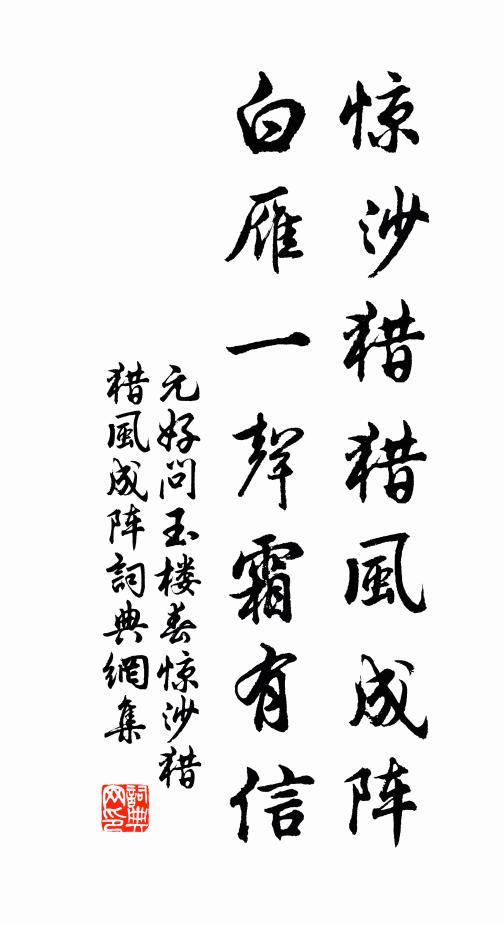 惊沙猎猎風成阵
白雁一聲霜有信
元好问玉楼春惊沙猎
猎風成阵詞典網集
詞典网印